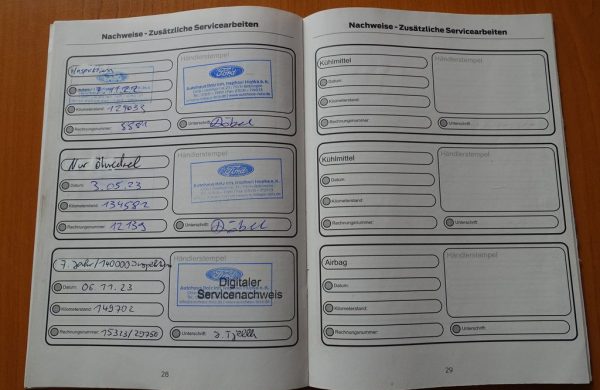 Nachweise - Zusätzliche Servicearbeiten
Inspektion
Händlerstempel
Ford
Datum: 7.11.22
Kilometerstand: 129033
Rechnungsnummer: 5581
Unterschrift:
Nur Ölwechsel
Händlerstempel
Ford
Datum: 3.05.23
Kilometerstand: 134582
Rechnungsnummer: 12139
Unterschrift:
7. Jahr/140000
Händlerstempel
Ford
Digitaler
Servicenachweis
Datum: 06.11.23
Kilometerstand: 149702
Rechnungsnummer: 15323/29750
Unterschrift:
28
Nachweise - Zusätzliche Servicearbeiten
Kühlmittel
Händlerstempel
Datum:
Kilometerstand:
Rechnungsnummer:
Unterschrift:
Kühlmittel
Händlerstempel
Datum:
Kilometerstand:
Rechnungsnummer:
Unterschrift:
Airbag
Händlerstempel
Datum:
Kilometerstand:
Rechnungsnummer:
Unterschrift:
29